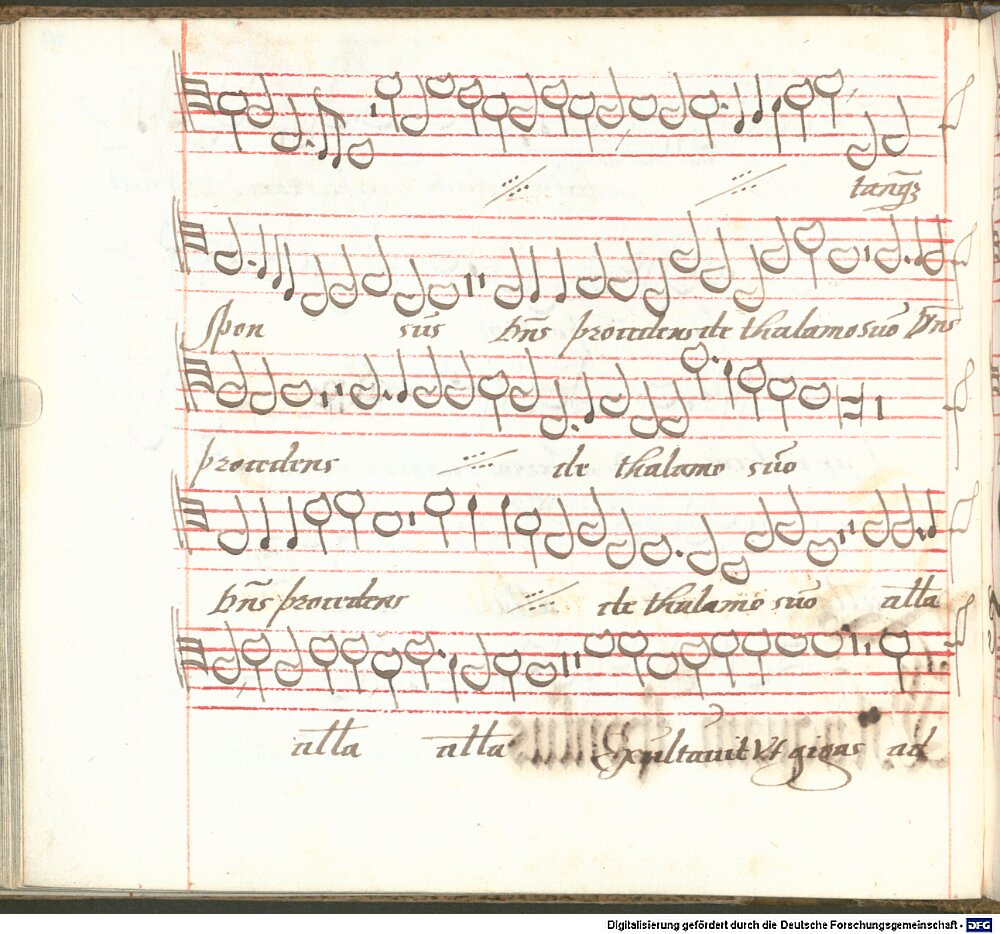 tanq̃ʒ
spon sus dn̄s procedens de thalamo suo dn̄s
procedens de thalamo suo
dn̄s procedens de thalamo suo alla
alla alla Exultauit Vt gigas ad
Digitalisierung gefördert durch die Deutsche Forschungsgemeinschaft - DFG